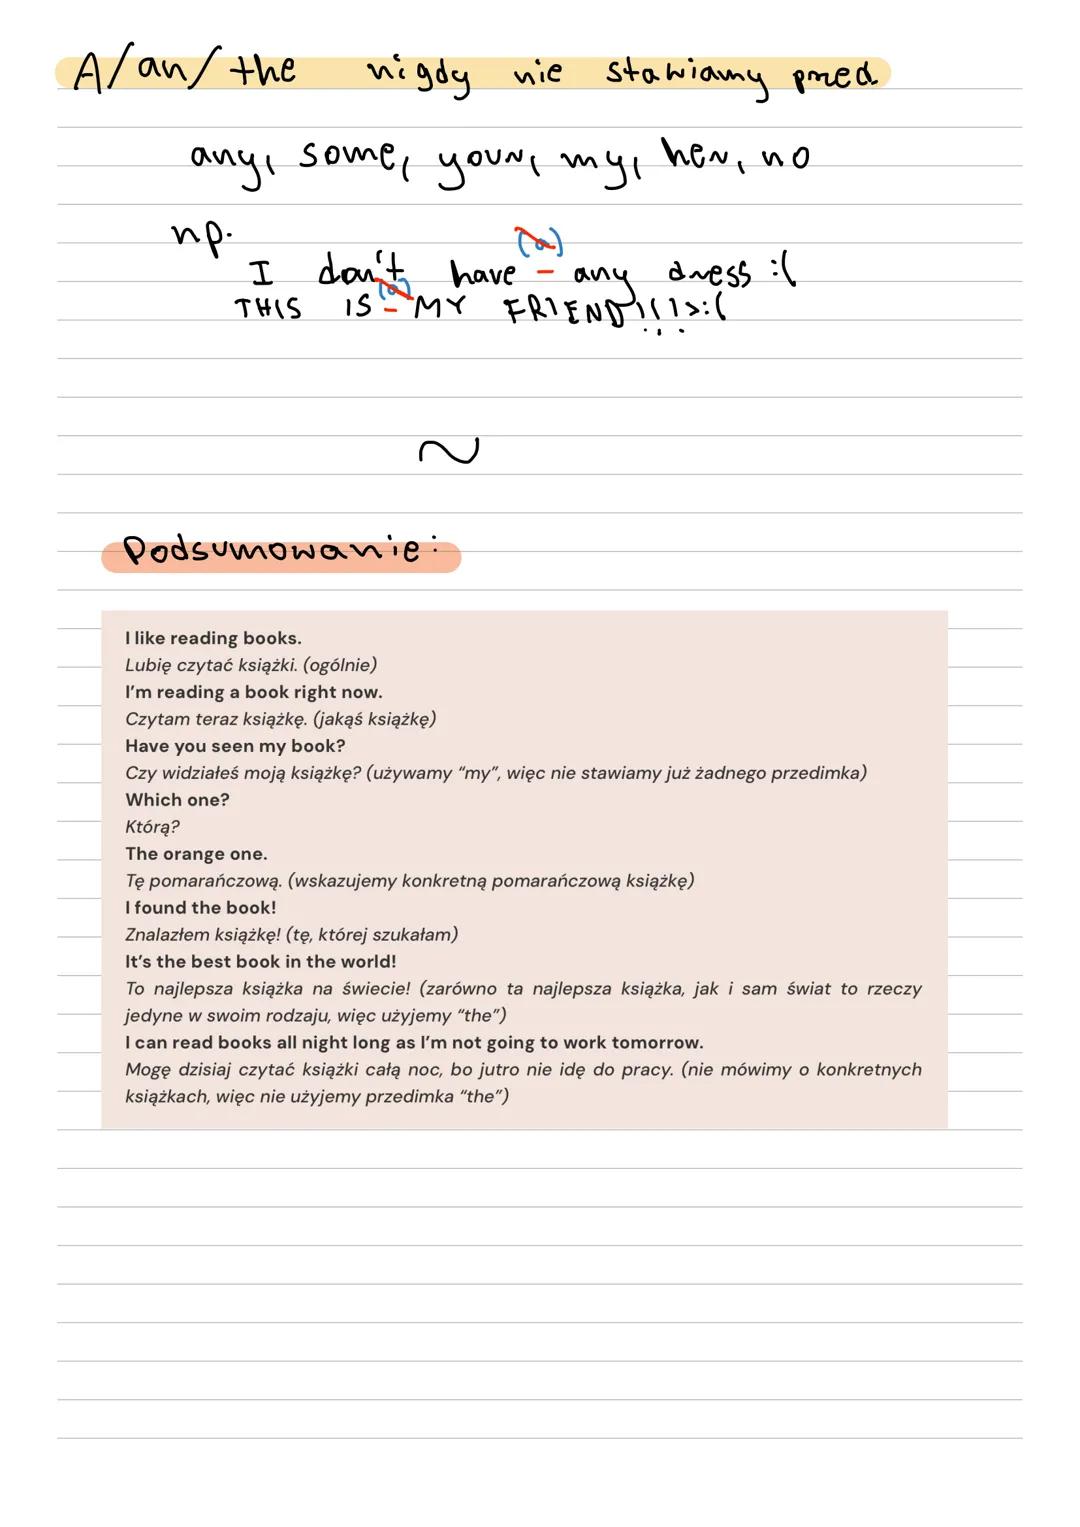 A/an/the nigdy nie stawiamy przed
any, some, your, my, her, no
np.
(a)
I don't have - any dress :(
(a)
THIS IS - MY FRIEND!!! >:(
~
Podsumowanie:
I like reading books.
Lubię czytać książki. (ogólnie)
I'm reading a book right now.
Czytam teraz książkę. (jakąś książkę)
Have you seen my book?
Czy widziałeś moją książkę? (używamy “my”, więc nie stawiamy już żadnego przedimka)
Which one?
Którą?
The orange one.
Tę pomarańczową. (wskazujemy konkretną pomarańczową książkę)
I found the book!
Znalazłem książkę! (tę, której szukałam)
It's the best book in the world!
To najlepsza książka na świecie! (zarówno ta najlepsza książka, jak i sam świat to rzeczy
jedyne w swoim rodzaju, więc użyjemy “the”)
I can read books all night long as I'm not going to work tomorrow.
Mogę dzisiaj czytać książki całą noc, bo jutro nie idę do pracy. (nie mówimy o konkretnych
książkach, więc nie użyjemy przedimka “the”)